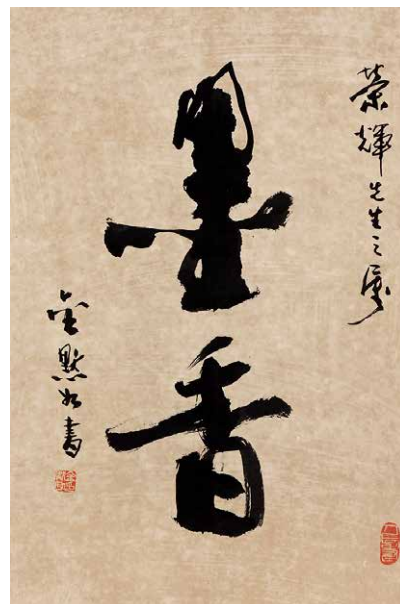 榮輝先生之屬
墨香
金默如書